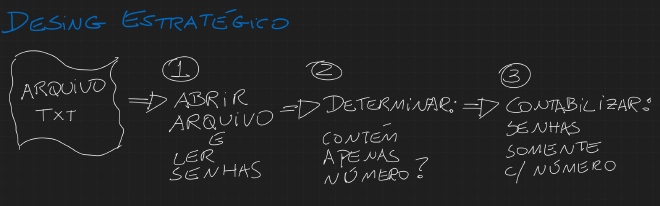 DESING ESTRATÉGICO
ARQUIVO
TXT
1
ABRIR
ARQUIVO
E
LER
SENHAS
2
DETERMINAR:
CONTÉM
APENAS
NÚMERO?
3
CONTABILIZAR:
SENHAS
SOMENTE
C/ NÚMERO